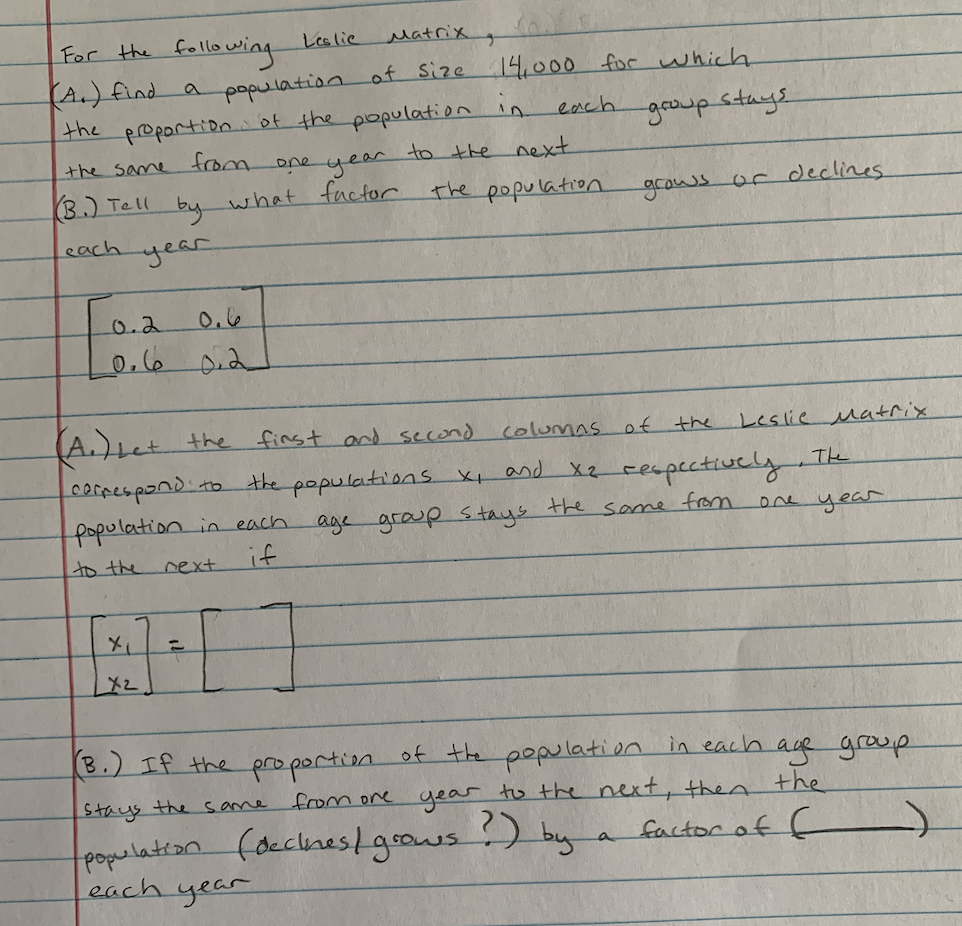 For the following Leslie Matrix,
(A.) find a population of size 14,000 for which
the proportion of the population in each group stays
the same from one year to the next
(B.) Tell by what factor the population grows or declines
each year
0.2 0.6
0.6 0.2
(A.) Let the first and second columns of the Leslie Matrix
correspond to the populations x₁ and x₂ respectively. The
population in each age group stays the same from one year
to the next if
x₁ =
x₂
(B.) If the proportion of the population in each age group
stays the same from one year to the next, then the
population (declines/grows?) by a factor of (____)
each year